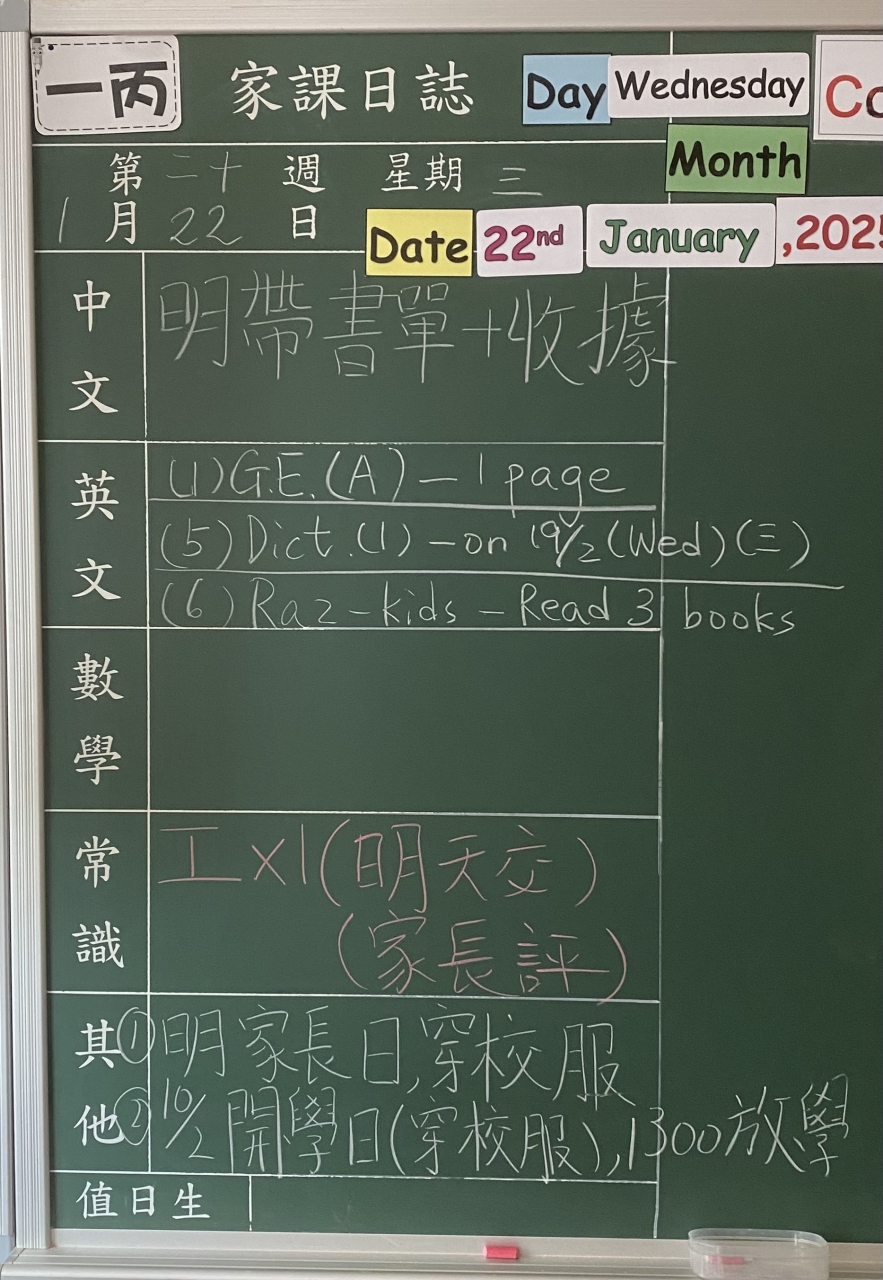 一丙 家課日誌 Day Wednesday
Month
第二十週 星期三
1月22日 Date 22nd January ,202
中文 明帶書單+收據
英文 (1) G.E. (A) – 1 page
(5) Dict. (1) – on 19/2 (Wed) (三)
(6) Raz-kids – Read 3 books
數學
常識 工x1(明天交)
(家長評)
其他 ①明家長日,穿校服
②10/2開學日(穿校服),1300放學
值日生